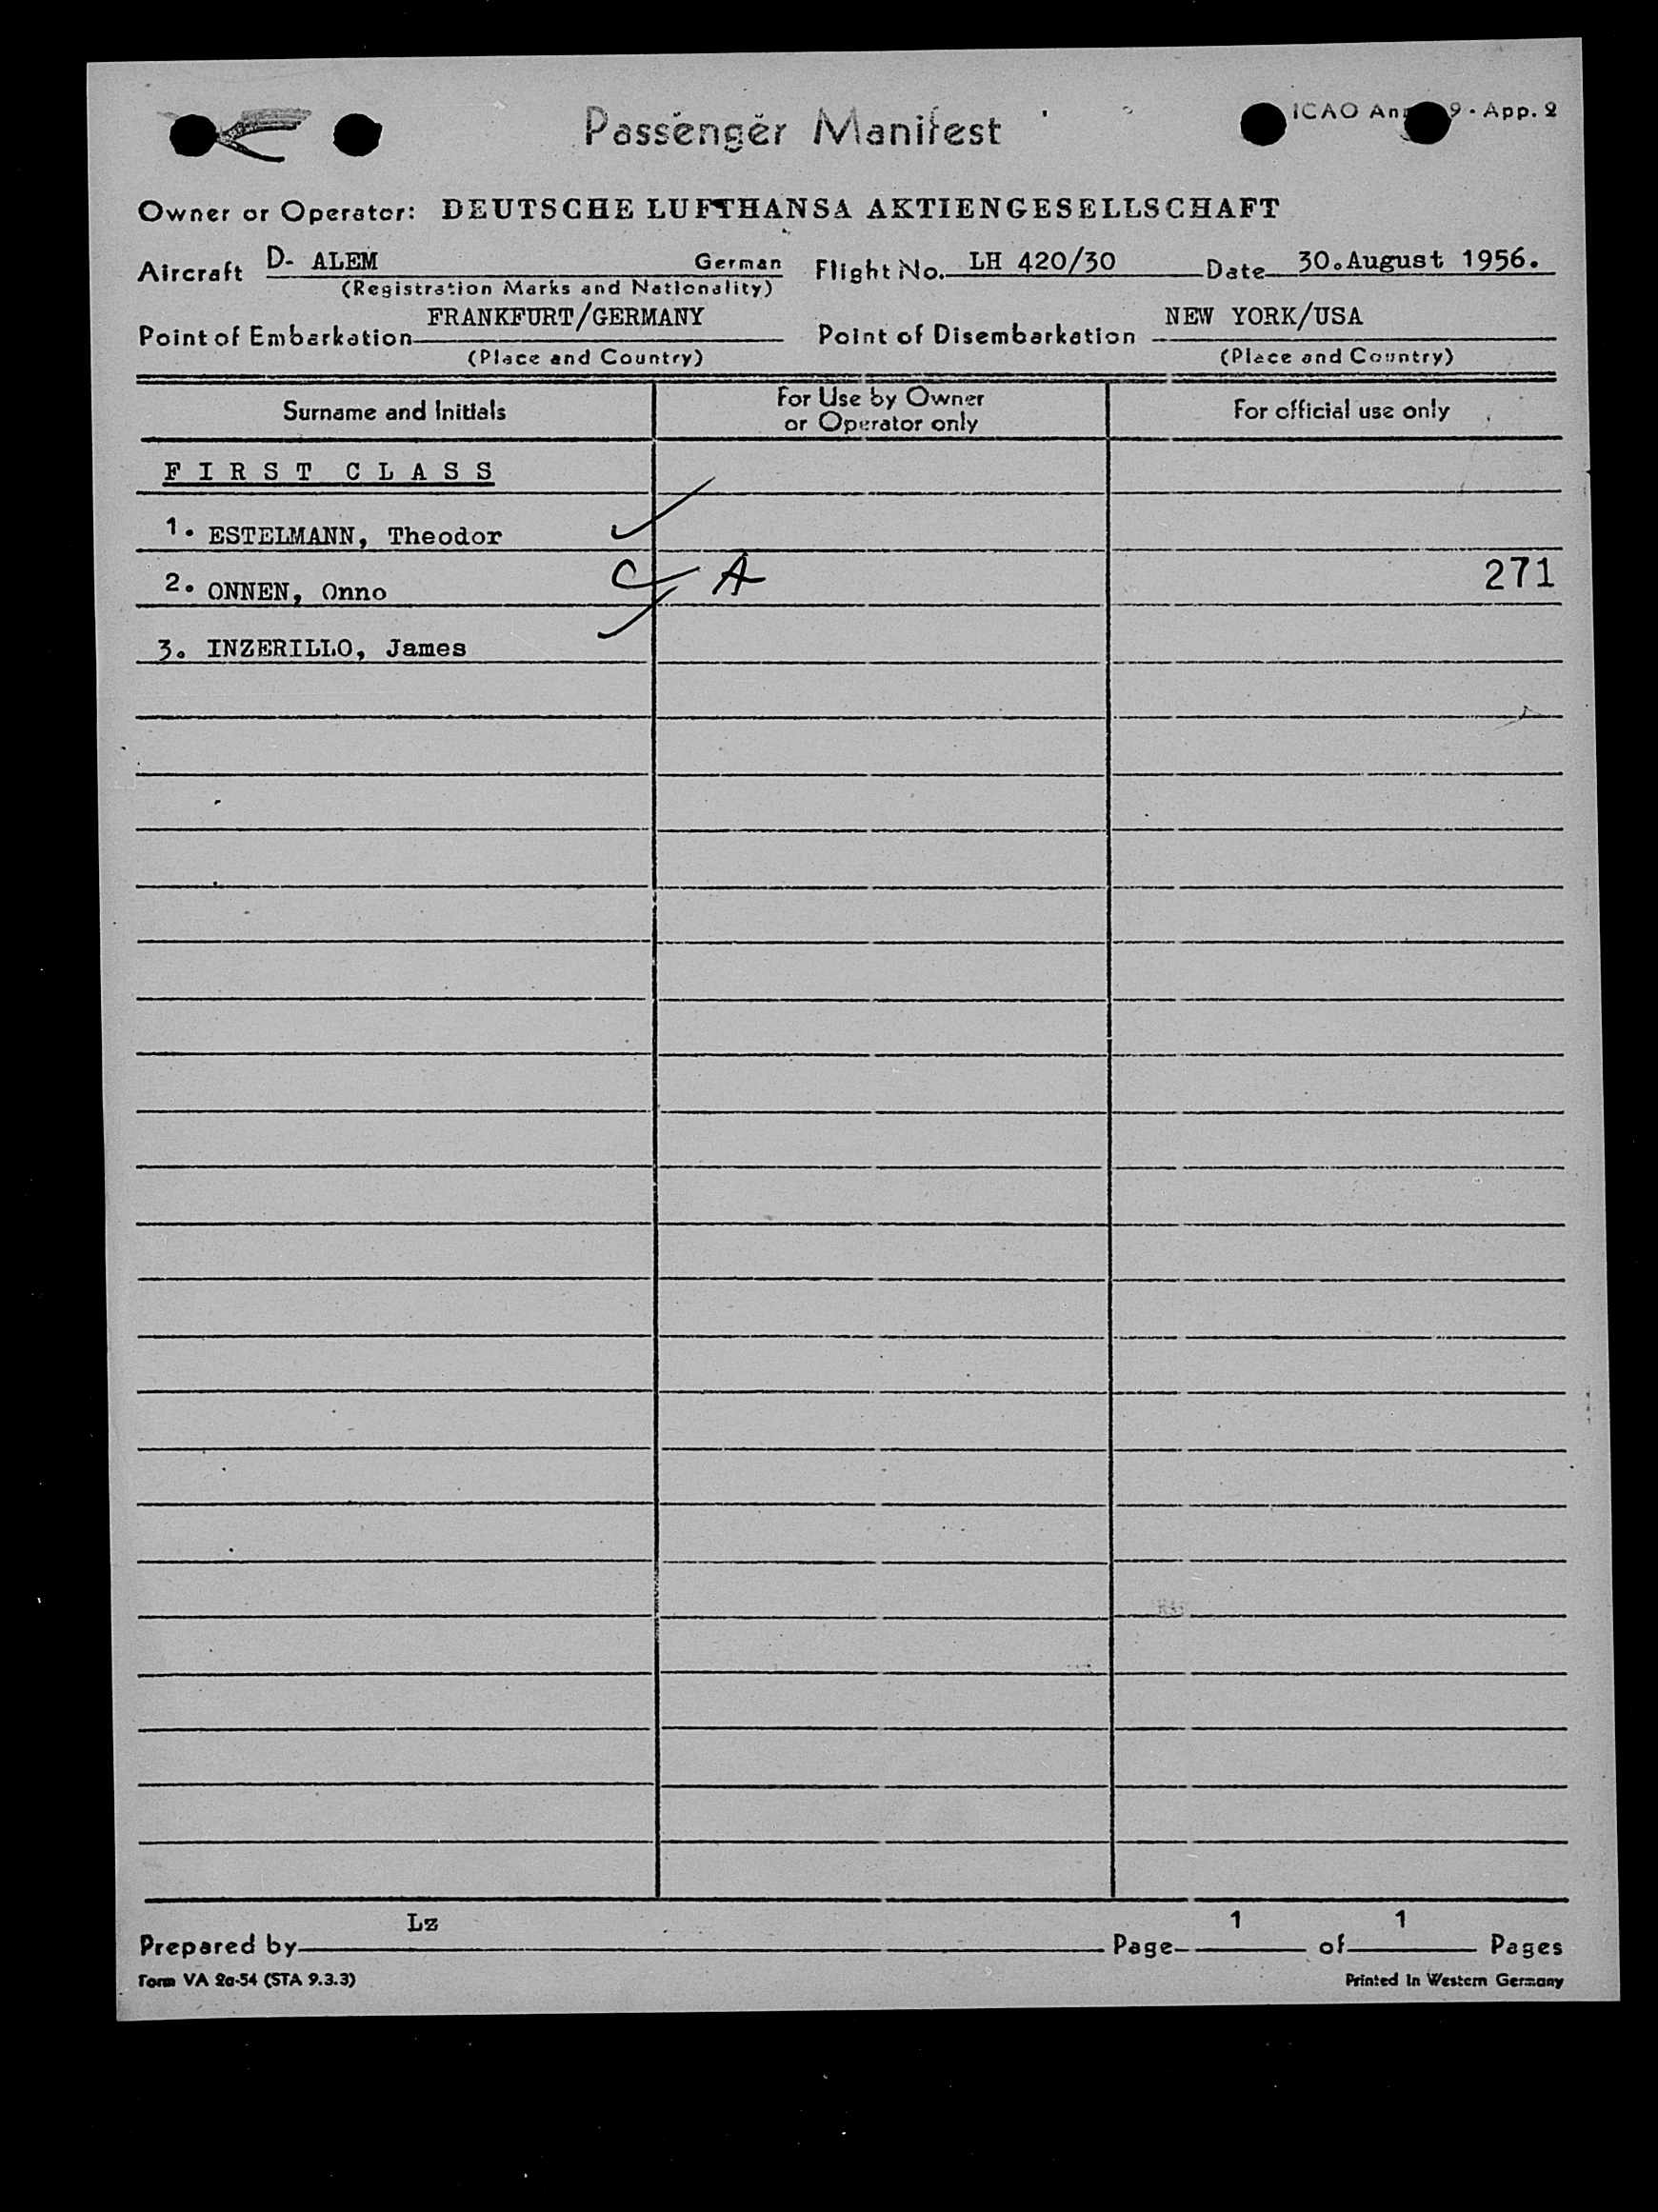 Passenger Manifest
ICAO 9 - App. 2
Owner or Operator: DEUTSCHE LUFTHANSA AKTIENGESELLSCHAFT
Aircraft D- ALEM German Flight No. LH 420/30 Date 30.August 1956.
(Registration Marks and Nationality)
Point of Embarkation FRANKFURT/GERMANY Point of Disembarkation NEW YORK/USA
(Place and Country) (Place and Country)
Surname and Initials For Use by Owner or Operator only For official use only
FIRST CLASS
1. ESTELMANN, Theodor
2. ONNEN, Onno C A 271
3. INZERILLO, James
Prepared by Lz Page 1 of 1 Pages
Form VA 2a-54 (STA 9.3.3) Printed in Western Germany